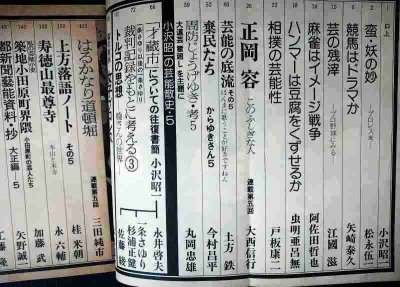 口上 小沢昭一
蛮・妖の妙 プロレス考 松永伍一
競馬はドラマか 矢崎泰久
芸の残滓 プロ野球にみる 江國滋
麻雀はイメージ戦争 阿佐田哲也
ハンマーは豆腐をくずせるか 虫明亜呂無
相撲の芸能性 戸板康二
正岡容 このふしぎな人 大西信行
芸能の底流 その5 土方鉄
棄民たち からゆきさん5 今村昌平
周防じょうげゆき・考5 丸岡忠雄
大道芸術館1〜5を主題に
小沢昭一の芸能散史・5
「才蔵市」についての往復書簡 小沢昭一 永井啓夫
裁判記録をもとに考える③ 一条さゆり 杉浦正健
トルコの思想 佐藤
はるかなり道頓堀 連載第五回 三田純市
上方落語ノート その5 桂米朝
寿徳山最尊寺 連載第五回 永六輔
加藤武
築地小田原町界隈 矢野誠一
都新聞藝能資料抄 大正編 5